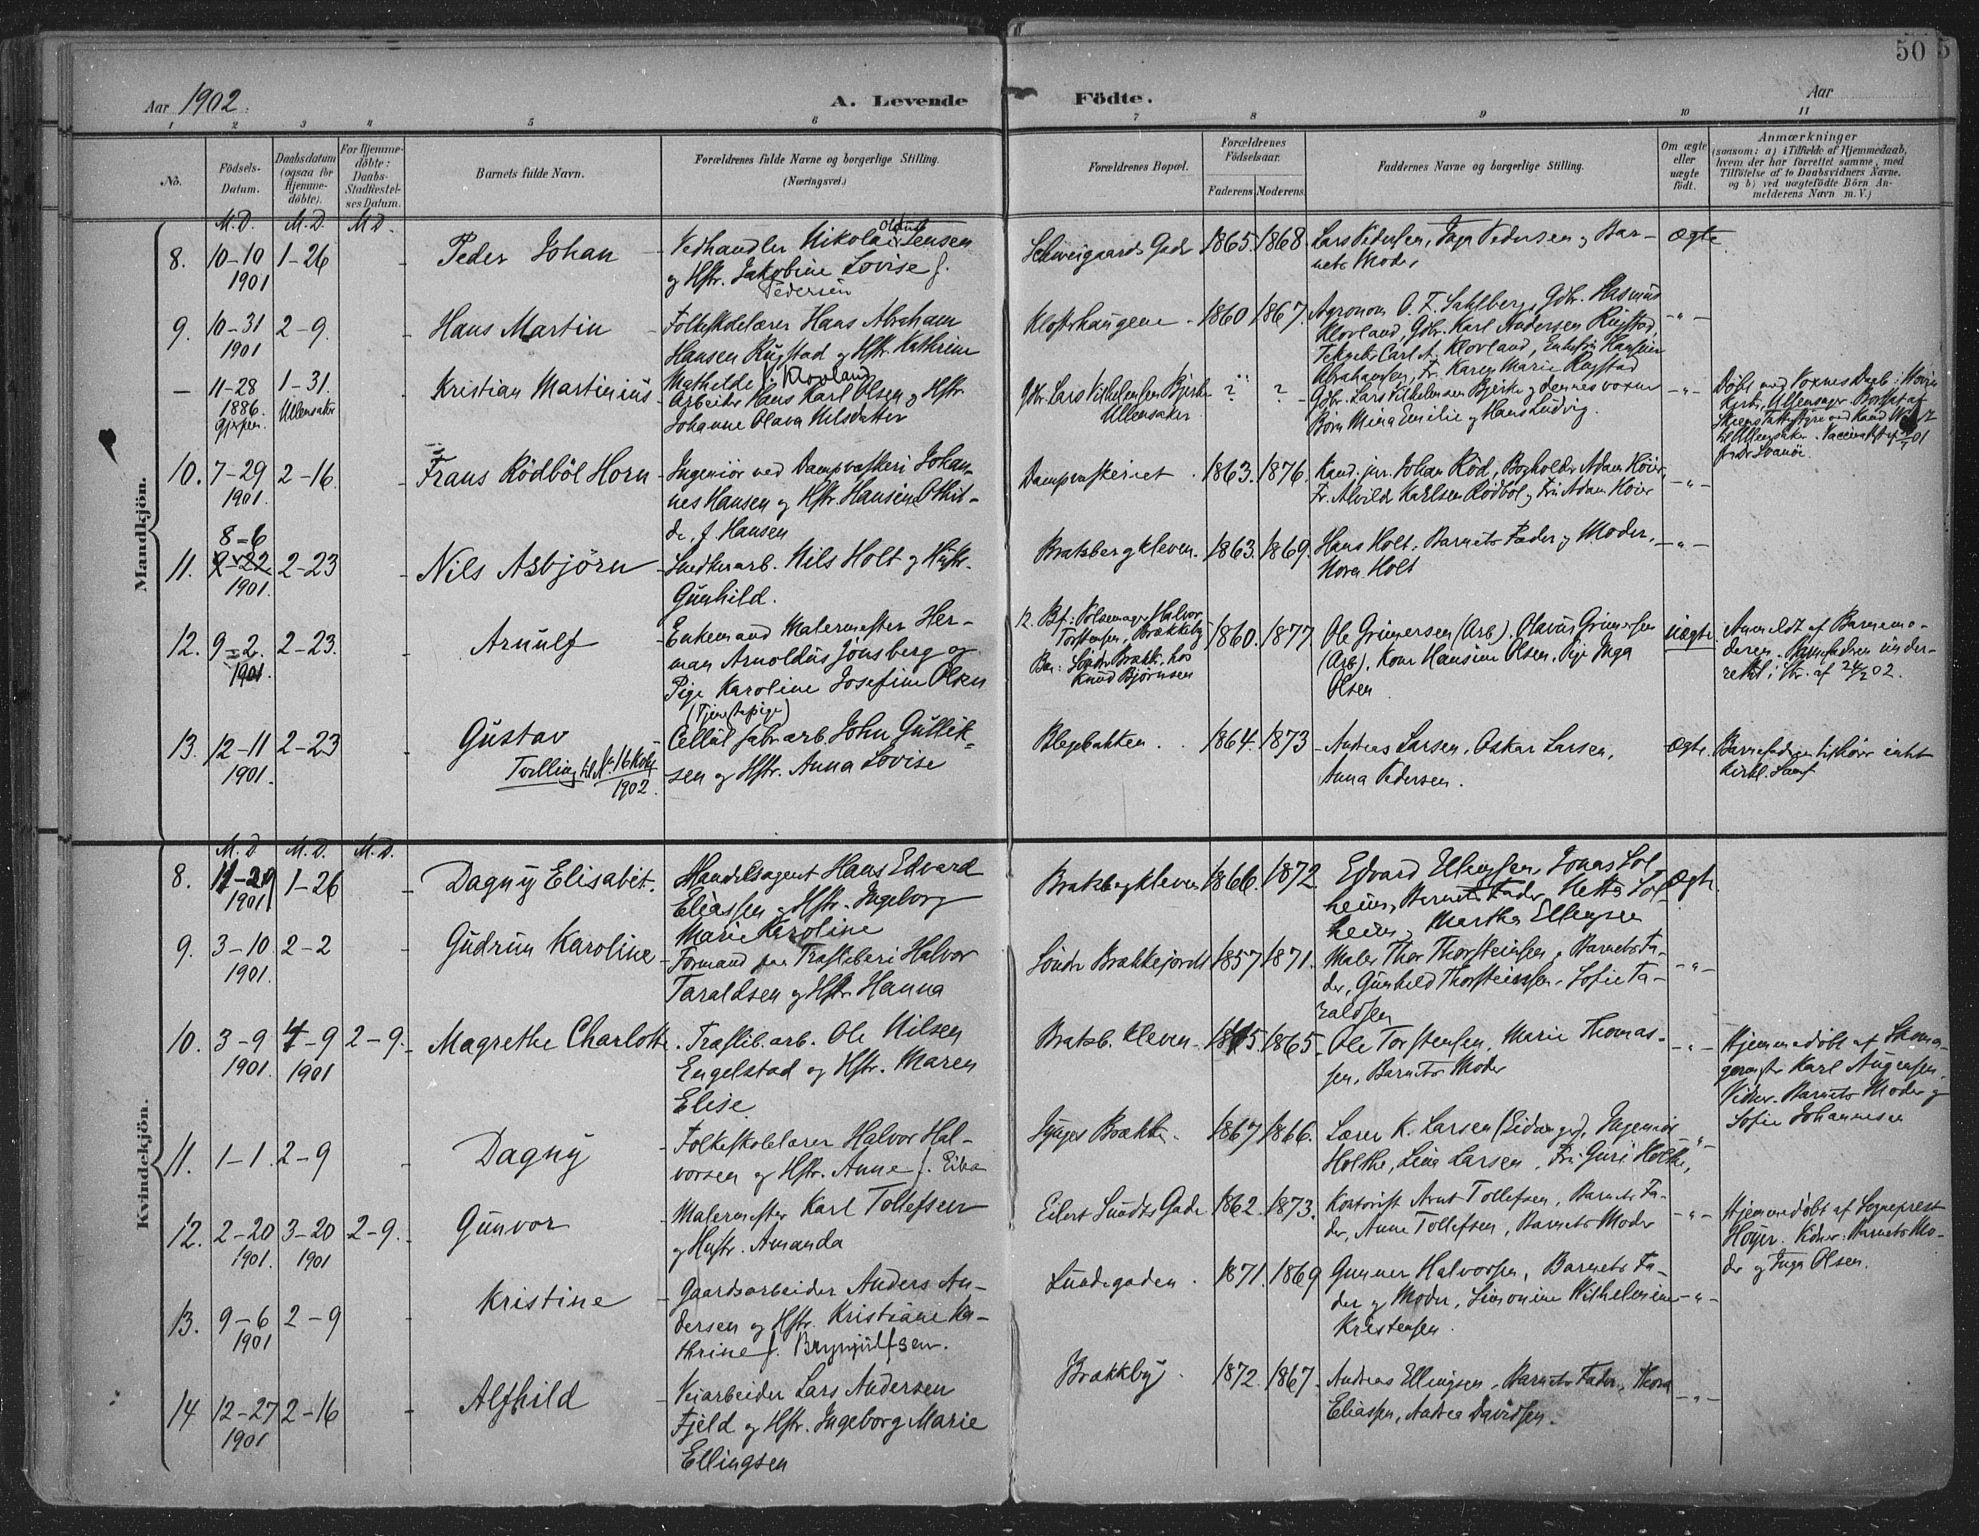 50
5
Aar 1902.
A. Levende Födte.
Aar
1 2 3 4 5 6 7 8 9 10 11
No.
Födsels-
Datum.
Daabsdatum
(ogsaa for
Hjemme-
döbte).
For Hjemme-
döbte:
Daabs-
Stadfæstel-
ses Datum.
Barnets fulde Navn.
Forældrenes fulde Navne og borgerlige Stilling.
(Næringsvei.)
Forældrenes Bopæl.
Forældrenes
Födselsaar.
Faderens. Moderens.
Faddernes Navne og borgerlige Stilling.
Om ægte
eller
uægte
født.
Anmærkninger
(saasom: a) i Tilfælde af Hjemmedaab,
hvem der har forrettet samme, med
Tilföielse af to Daabsvidners Navne,
og b) ved uægtefödte Börn An-
melderens Navn m. V.)
Mandkjön.
M. D. M. D. M D.
8. 10-10
1901
1-26
Peder Johan
Vedhandler Nikolai Jensen
og Hstr. Jakobine Lovise f.
Pedersen
Schweigaards Gade
1865. 1868.
Lars Pedersen, Inga Pedersen og Bar-
nets Moder
Ægte
9. 10-31
1901
2-9.
Hans Martin
Folkeskolelærer Hans Abraham
Hansen Rugstad og Hstr. Kathrine
Mathilde f. Klovland
Klosterhaugene.
1860 1867.
Agronom O. F. Sahlberg, Gdbr. Rasmus
Klovland, Gdbr. Karl Andersen Rugstad,
Carl A. Klovland, Hansine
Abrahamsen, Fr. Karen Marie Rugstad
-"-
11-28
1886.
Gjerpen.
1-31.
Ullensaker
Kristian Martinius
Arbeider Hans Karl Olsen og Hstr.
Johanne Olava Nilsdatter
Gdbr. Lars Vilhelmsen Bjerke
Ullensaker
? ?
Gdbr. Lars Vilhelmsen Bjerke og dennes voxne
Børn Mina Emilie og Hans Ludvig.
-"-
Døbt med Voxnes Daab i Hovin
Kirke, Ullensager. Bortsat af
Skiens Fattigstyre
til Ullensaker.
10. 7-29
1901.
2-16.
Frans Rödböl Horn
Ingeniør ved Dampvaskeri Johan-
nes Hansen og Hstr. Hansine Othil-
de, f. Hansen
Dampvaskeriet
1863. 1876.
Kand. jur. Johan Röd, Bogholder Adam Höier,
Fr. Alvilde Karlsen Rödböl og Fru Adam Höier
-"-
11. 8-6
1901.
2-23
Nils Asbjörn
Snedkerarb. Nils Holt og Hstr.
Gunhild.
Bratsbergkleven.
1863. 1869.
Hans Holt, Barnets Fader og Moder,
Nora Holt
-"-
12. 9-2.
1901
2-23.
Arnulf
Enkemand Malermester Her-
man Arnoldus Jonsberg og
Pige Karoline Josefine Olsen
(Tjenestepige)
12. Bf: Pølsemager Halvor
Torstensen, Brækkeby
Bm: Söndre Brække hos
Knud Björnsen
1860. 1877.
Ole Grimersen (Arb). Olavus Grimersen
(Arb), Kone Hansine Olsen, Pige Inga
Olsen.
uægte
Anmeldt af Barnemo-
deren. Barnefaderen under-
rettet i Skr. af 24/2 02.
13. 12-11
1901.
2-23
Gustav
Tvilling til No. 16 Kvkj
1902.
Cellul. fabr. arb. John Gullik-
sen og Hstr. Anna Lovise
Blegebakken.
1864. 1873
Andreas Larsen, Oskar Larsen,
Anna Pedersen.
Ægte.
Barnefaderen tilhører intet
kirkl. Samf
Kvindekjön.
M. D M. D. M. D.
8. 11-20
1901
1-26
Dagny Elisabet.
Handelsagent Hans Edvard
Eliassen og Hstr. Ingeborg
Marie Karoline
Bratsbergkleven
1866. 1872
Edvard Ellingsen, Jonas Sol-
heim, Barnets Fader, Netta Sol-
heim, Martha Ellingsen
Ægte.
9. 3-10
1901.
2-2
Gudrun Karoline
Formand paa Træsliberi Halvor
Taraldsen og Hstr. Hanna
Söndre Brækkejordet
1857 1871.
Maler Thor Thorsteinsen, Barnets Fa-
der, Gunhild Thorsteinssen. Sofie Ta-
raldsen
-"-
10. 3-9
1901.
4-9
1901
2-9.
Magrethe Charlotte
Træslib. arb. Ole Nilsen
Engelstad og Hstr. Maren
Elise.
Bratsb. Kleven
1865.
Ole Torstensen, Marie Thomas-
sen, Barnets Moder
-"-
Hjemmedøbt af Skoma-
germester Karl Augensen.
Vidner. Barnets Moder og
Sofie Johannesen
11. 1-1. 2-9
Dagny
Folkeskolelærer Halvor Hal-
vorsen og Hstr. Anne f.
Brække.
1867 1866.
Lærer K. Larsen (Eidanger), Ingeniør
Holthe, Lina Larsen, Fru Guri Holthe,
-"-
12. 2-20
1901.
3-20
1901
2-9.
Gunvor
Malermester Karl Tollefsen
og Hustr. Amanda
Eilert Sundts Gade
1862. 1873.
Kontorist Arnt Tollefsen, Barnets Fa-
der, Anne Tollefsen, Barnets Moder
-"-
Hjemmedøbt af Sogneprest
Höyer. Vidner: Barnets Mo-
der og Inga Olsen.
13. 9-6
1901
2-9
Kristine
Gaardsarbeider Anders An-
dersen og Hstr. Kristiane Ka-
thrine f. Brynjulfsen.
Lundegaden.
1871. 1869
Gunner Halvorsen, Barnets Fa-
der og Moder, Simonine Wilhelmine
Kristensen.
-"-
14 12-27
1901
2-16
Alfhild
Veiarbeider Lars Andersen
Fjeld og Hstr. Ingeborg Marie
Ellingsen
Brækkby.
1872. 1867
Andreas Ellingsen, Barnets Fader, Thora
Eliassen, Andrea Davidsen.
-"-